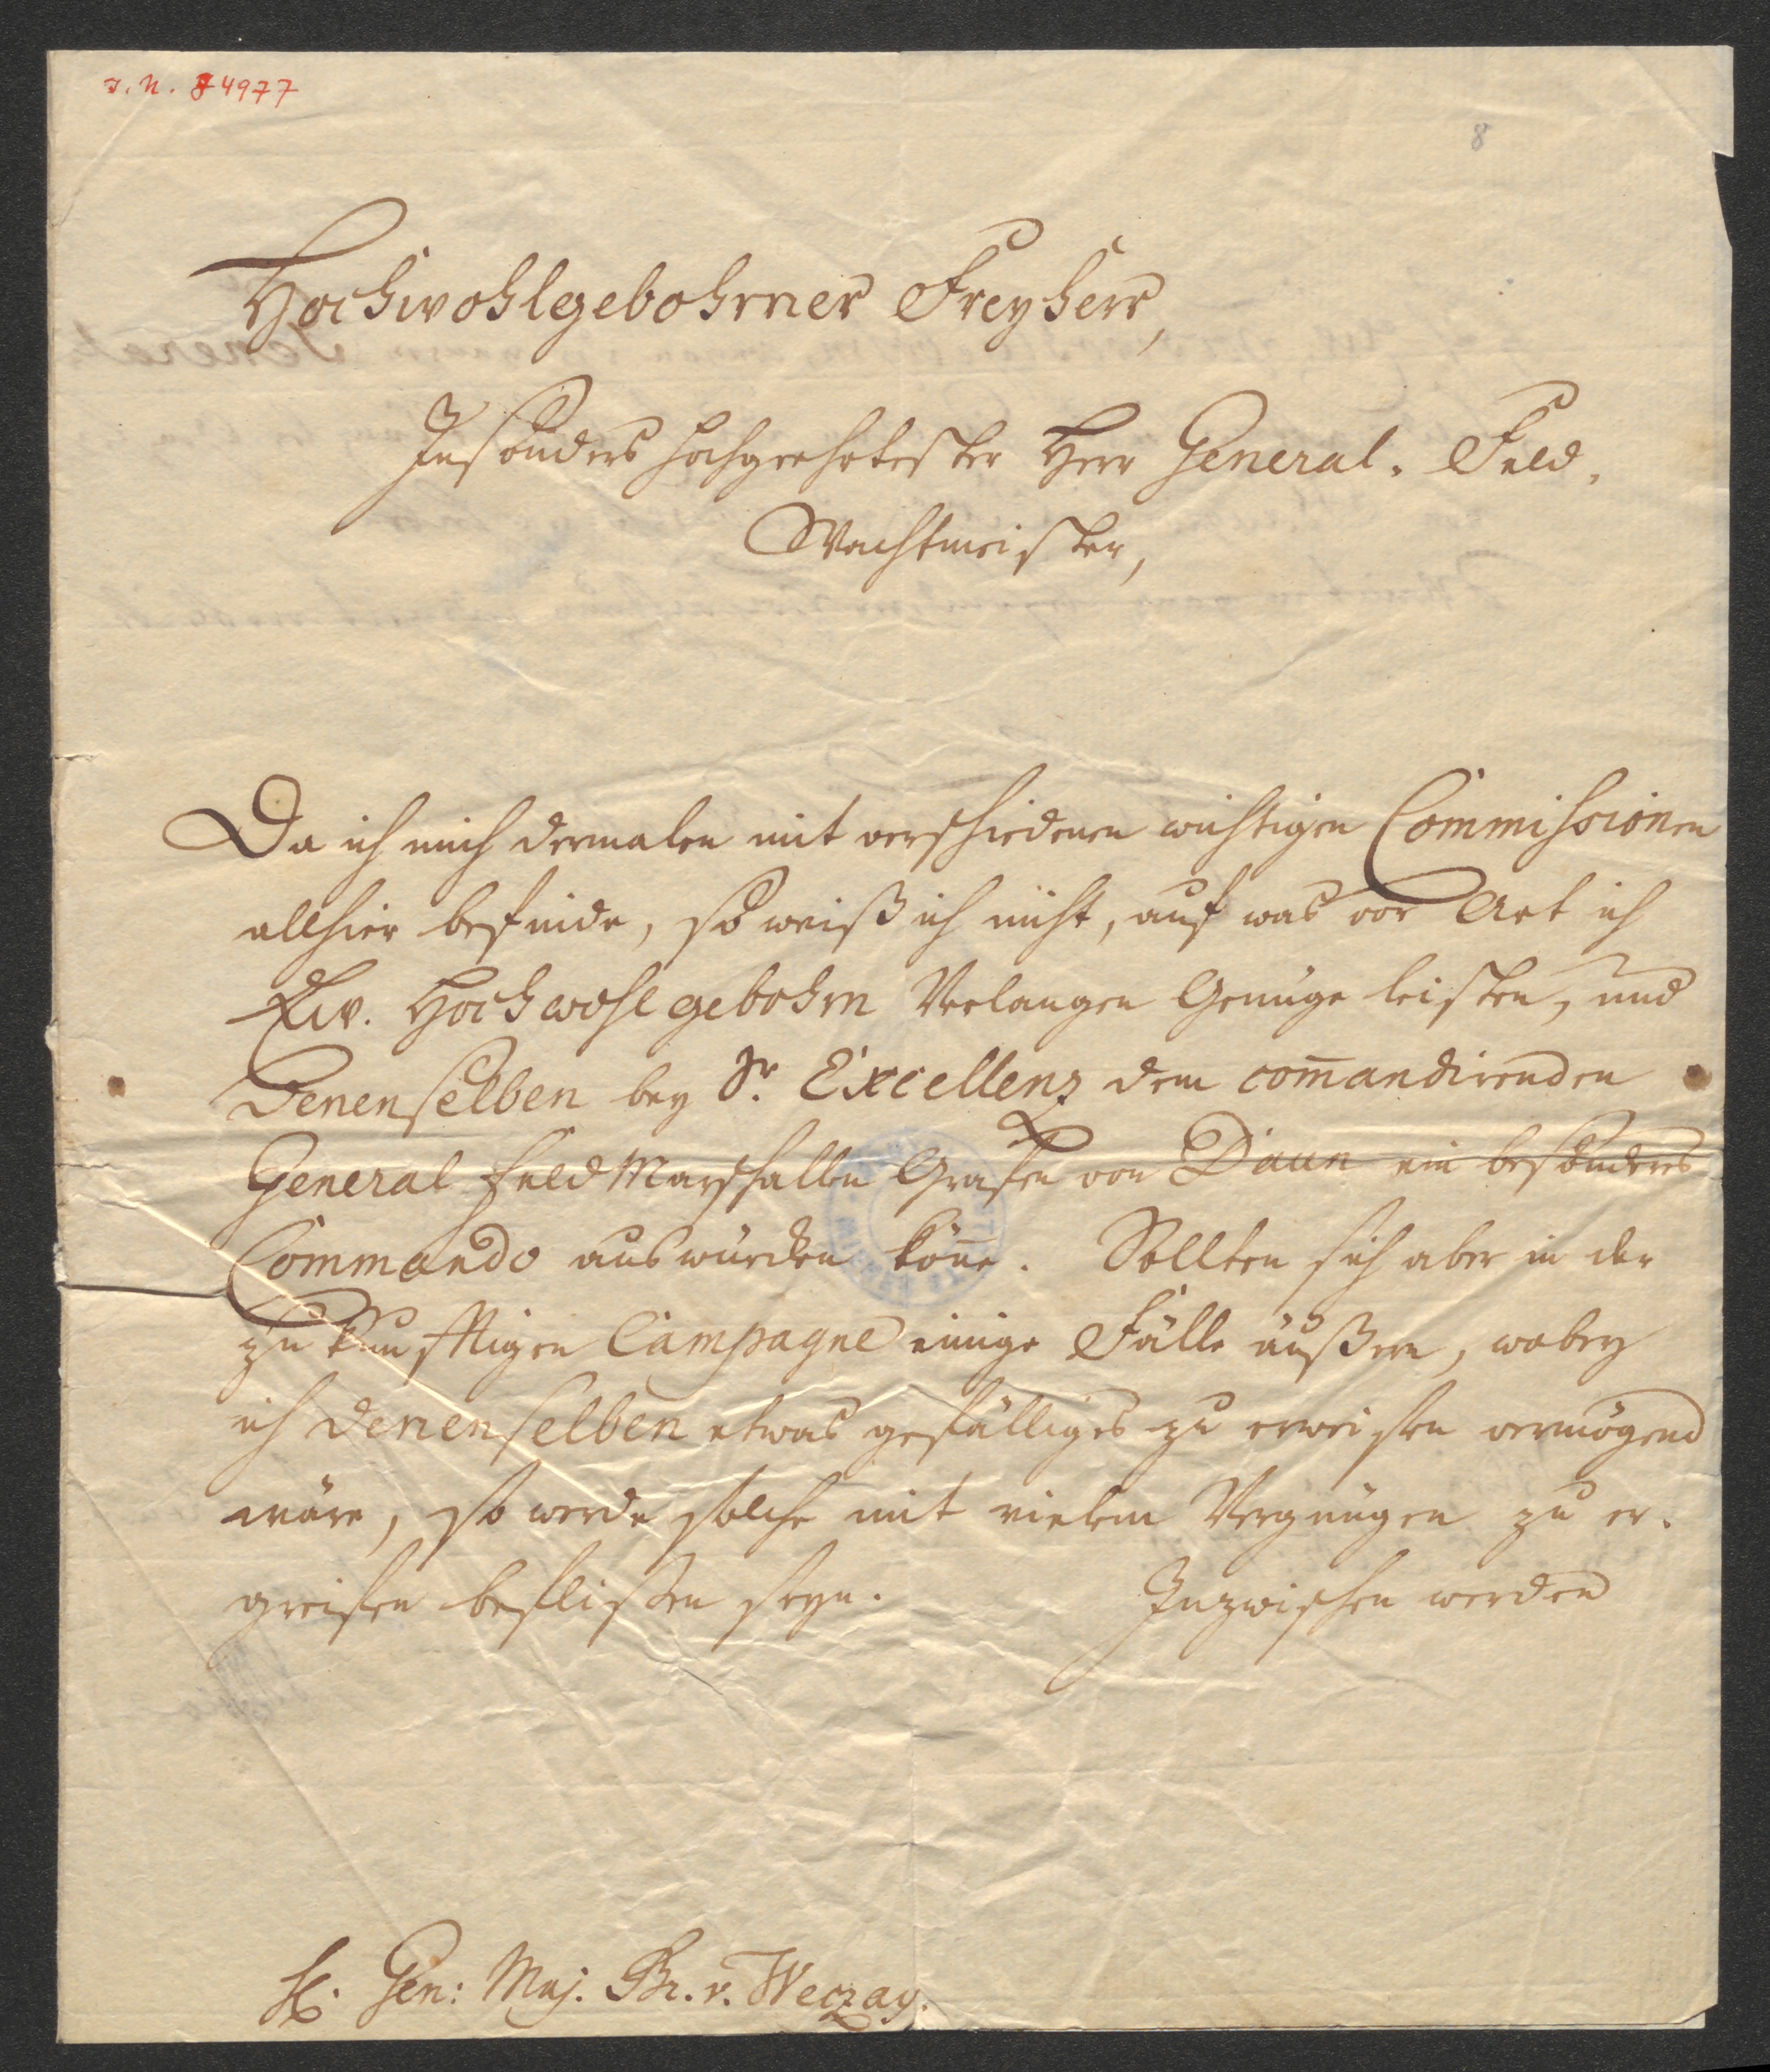 I. N. 84977
8
Hochwohlgebohrner Freyherr,
Insonders hochgeehrtester Herr General-Feld-
Wachtmeister,
Da ich mich dermalen mit verschiedenen wichtigen Commissionen
allhier befinde, so weiß ich nicht, auf was vor Art ich
Ew. Hochwohlgebohrn Verlangen Genüge leisten, und
Denenselben bey Sr. Excellenz dem com̄andirenden
General FeldMarschallen Grafen von Daun ein besonderes
Commando auswürcken kön̄e. Sollten sich aber in der
zukunfftigen Campagne einige Fälle äußern, wobey
ich Denenselben etwas gefälliges zu erweisen vermögend
wäre, so werde solche mit vielem Vergnügen zu er-
greifen beflissen seyn. Inzwischen werden
H. Gen: Maj. Br. v. Weczay.